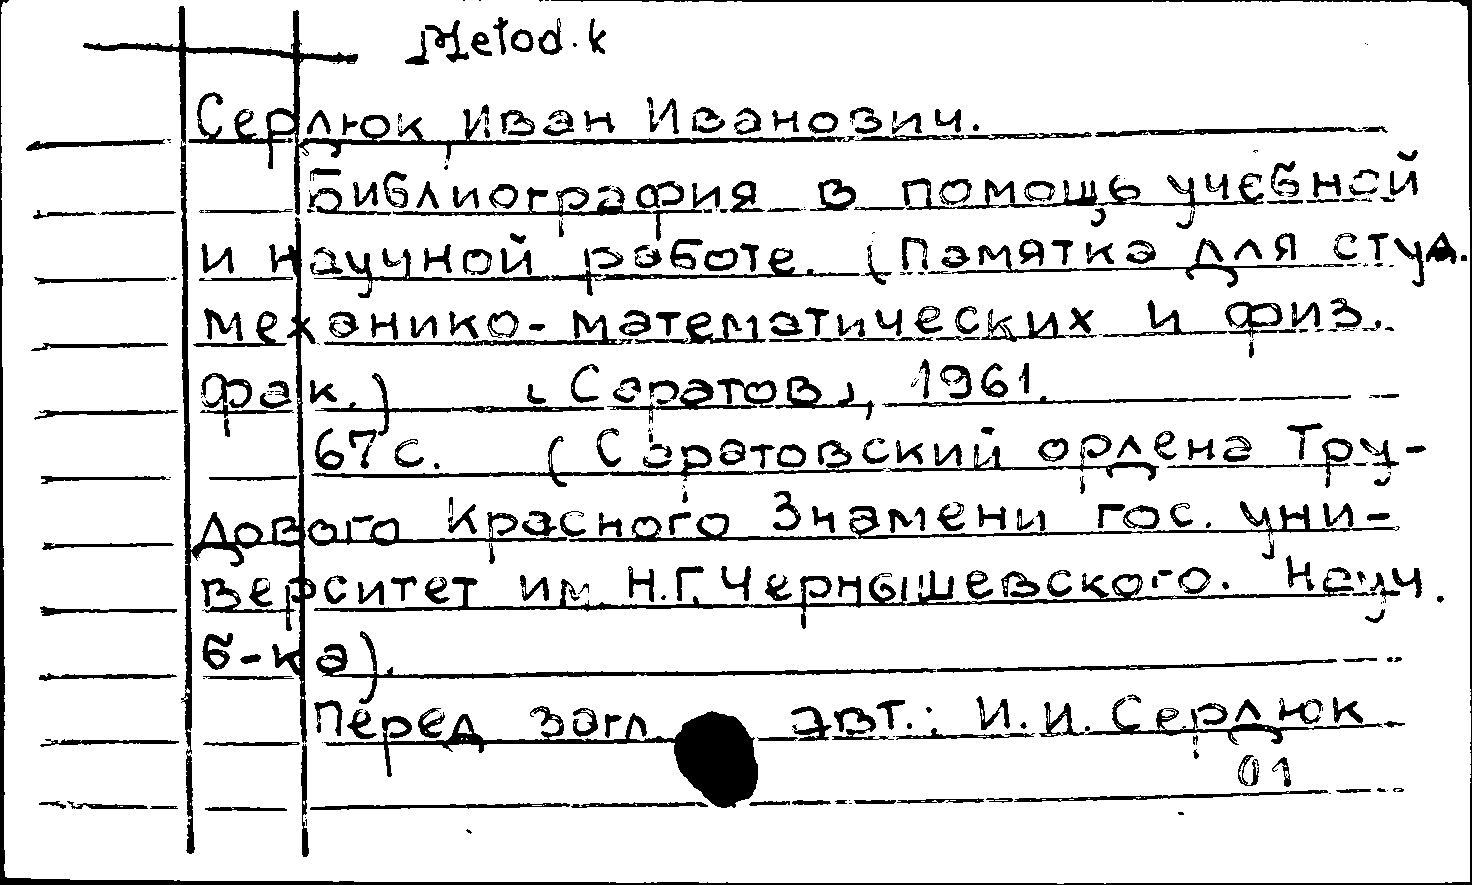 Metod. k
Сердюк, Иван Иванович.
Библиография в помощь учебной
и научной работе. (Памятка для студ.
механико-математических и физ.
фак.) [Саратов], 1961.
67 с. (Саратовский ордена Тру-
дового Красного Знамени гос. уни-
верситет им. Н.Г. Чернышевского. Науч.
б-ка).
Перед загл. авт.: И.И. Сердюк
01